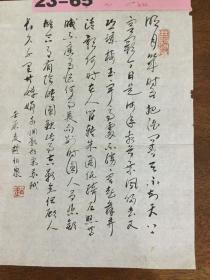 23-65
明月幾時有把酒問青天不知天上
宮闕今夕是何年我欲乘風歸去又
恐瓊樓玉宇高處不勝寒起舞弄
清影何似在人間轉朱閣低綺戶照無
眠不應有恨何事長向別時圓人有悲歡
離合月有陰晴圓缺此事古難全但願人
長久千里共嬋娟